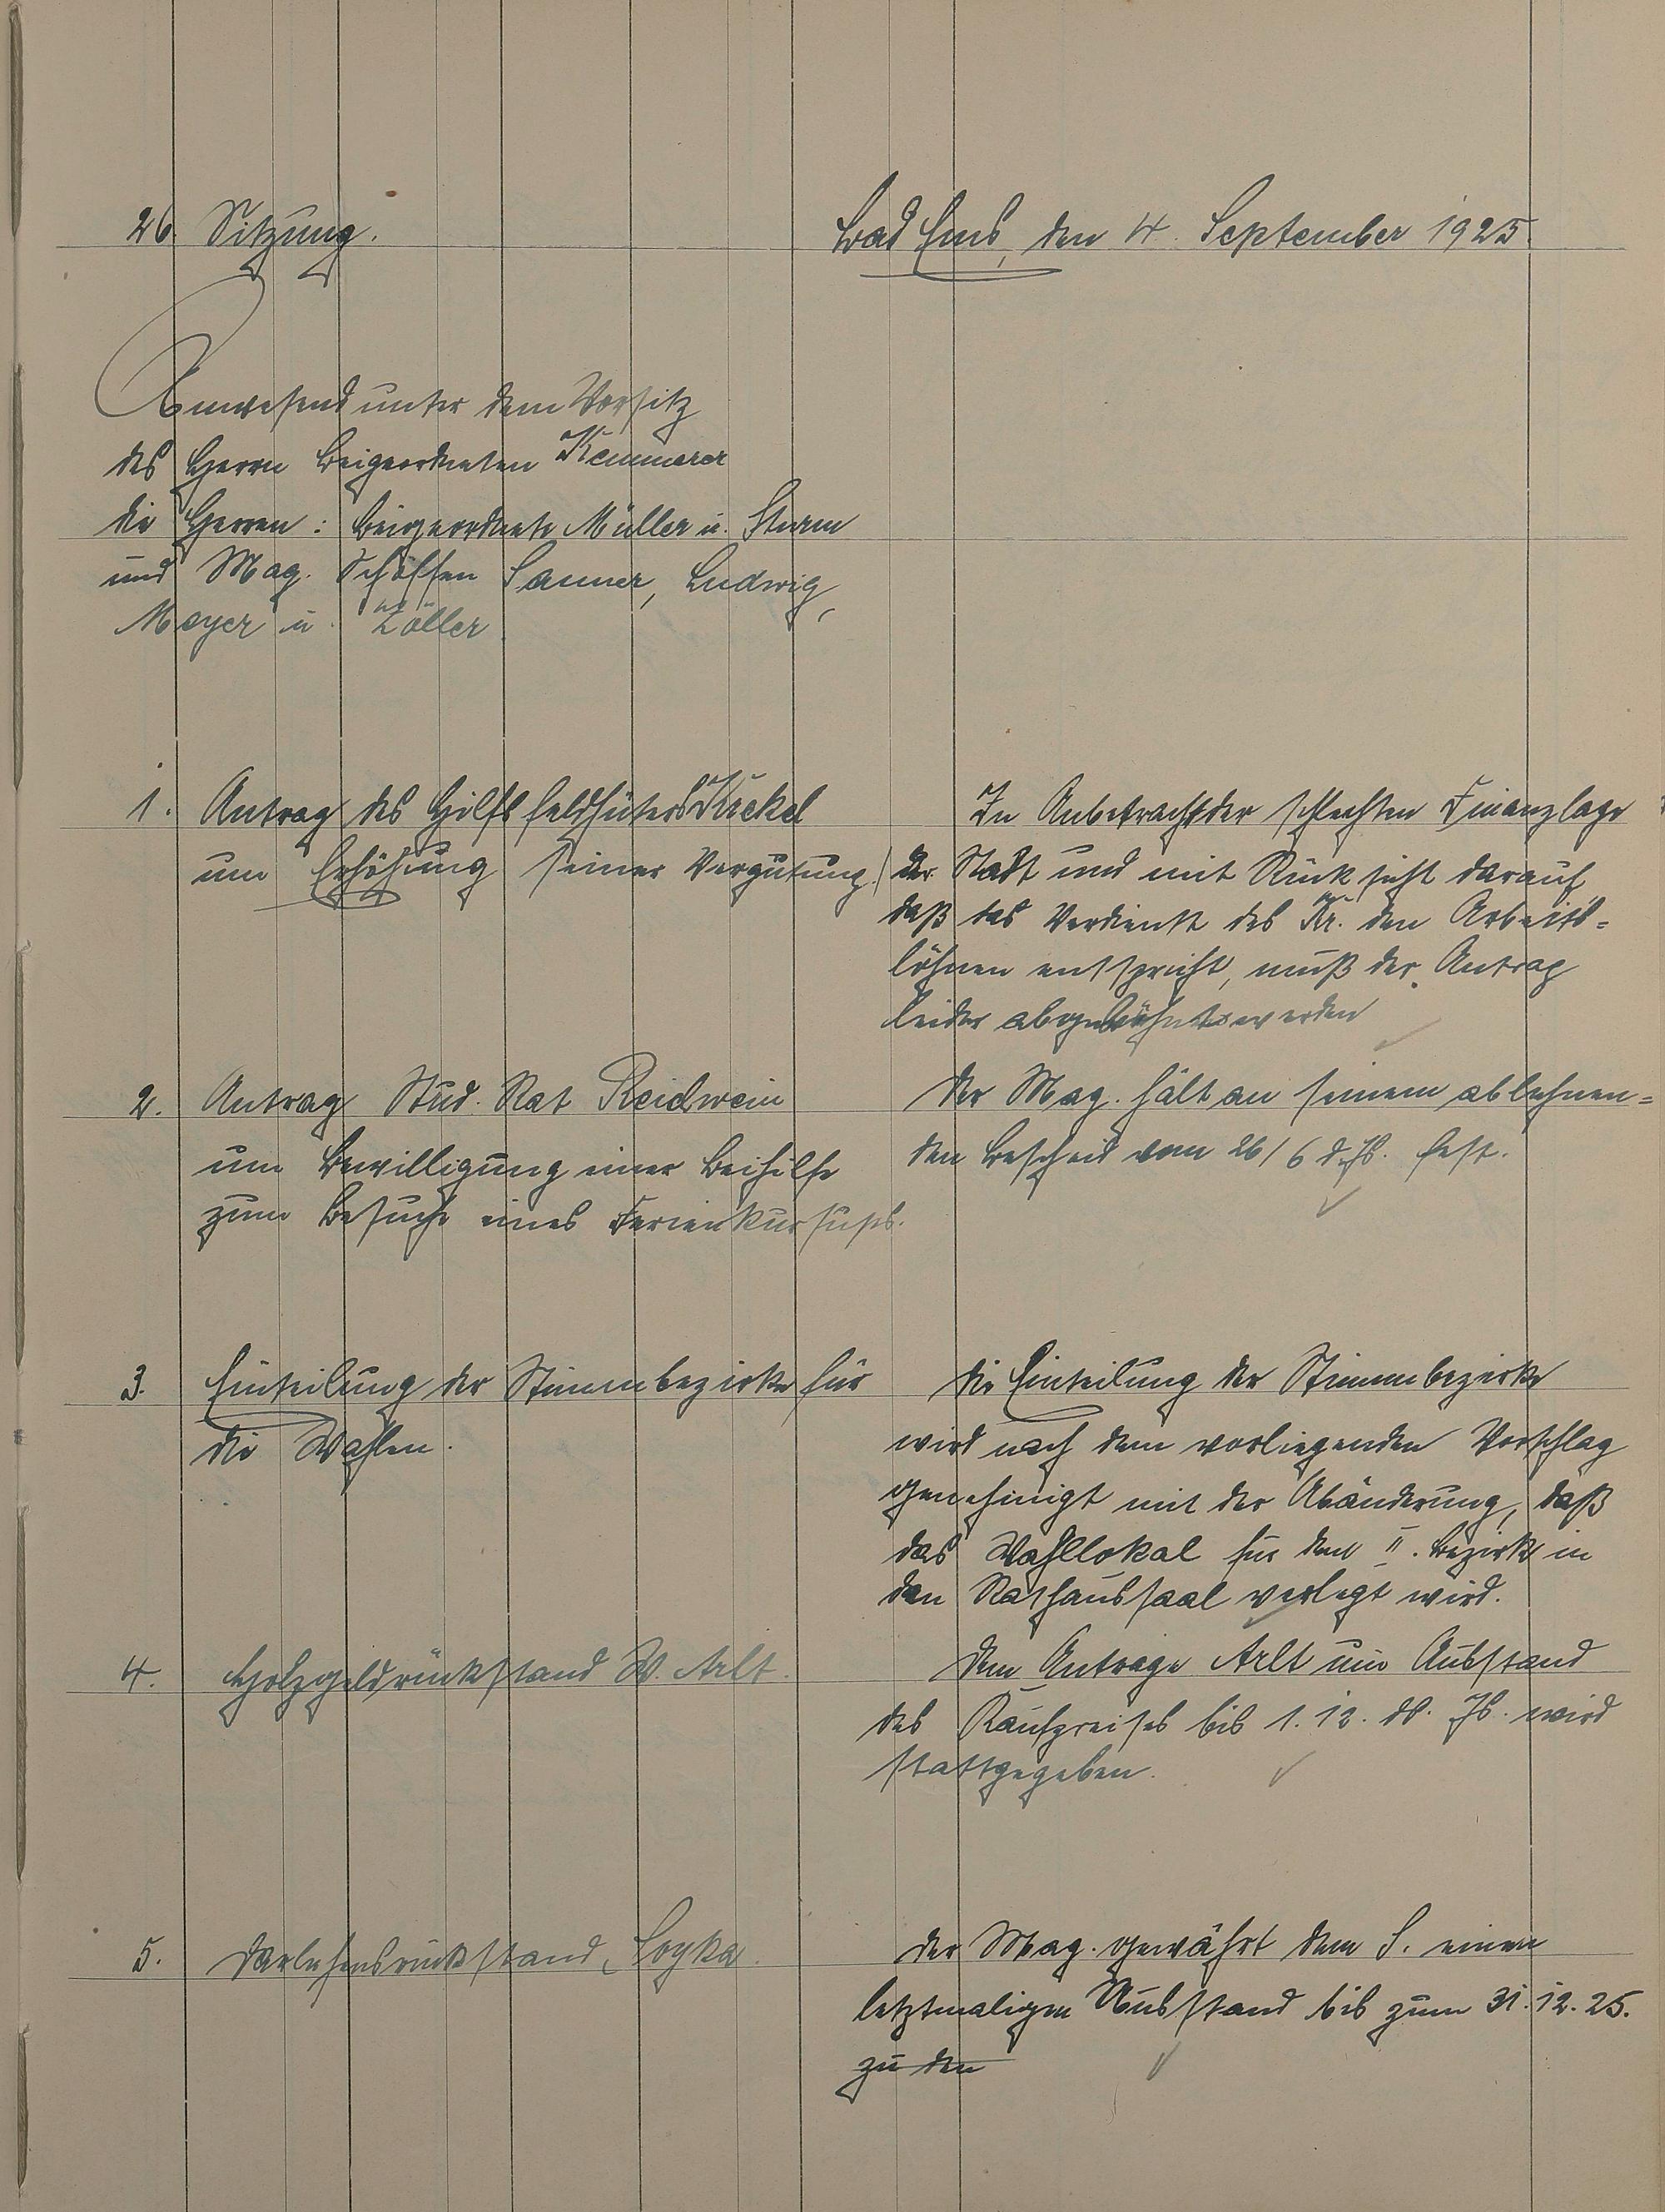 26. Sitzung.
Bad Ems, den 4. September 1925.
Anwesend unter dem Vorsitz
des Herrn Beigeordneten Kemmerer
die Herren: Beigeordnete Müller u. Sturm
und Mag. Schöffen Sanner, Ludwig,
Meyer u. Zöller
1. Antrag des Hilfsfeldhüters Krekel
um Erhöhung seiner Vergütung.
In Anbetracht der schlechten Finanzlage
der Stadt und mit Rücksicht darauf
daß das Verdienst des Kr. den Arbeits=
löhnen entspricht, muß der Antrag
leider abgelehnt werden
2. Antrag Stud. Rat Reidwein
um Bewilligung einer Beihilfe
zum Besuche eines Ferienkursuses.
Der Mag. hält an seinem ablehnen=
den Bescheid vom 26/6 d. Js. fest.
3. Einteilung der Stimmbezirke für
die Wahlen.
Die Einteilung der Stimmbezirke
wird nach dem vorliegenden Vorschlag
genehmigt mit der Abänderung, daß
das Wahllokal für den II. Bezirk in
den Rathaussaal verlegt wird.
4. Holzgeldrückstand W. Arlt.
Dem Antrage Arlt um Ausstand
des Kaufpreises bis 1.12. ds. Js. wird
stattgegeben.
5. Darlehensrückstand, Soyka.
Der Mag. gewährt dem S. einen
letztmaligen Ausstand bis zum 31.12.25.
zu den